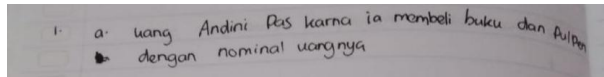 1. a. uang Andini Pas karna ia membeli buku dan Pulpen
dengan nominal uangnya